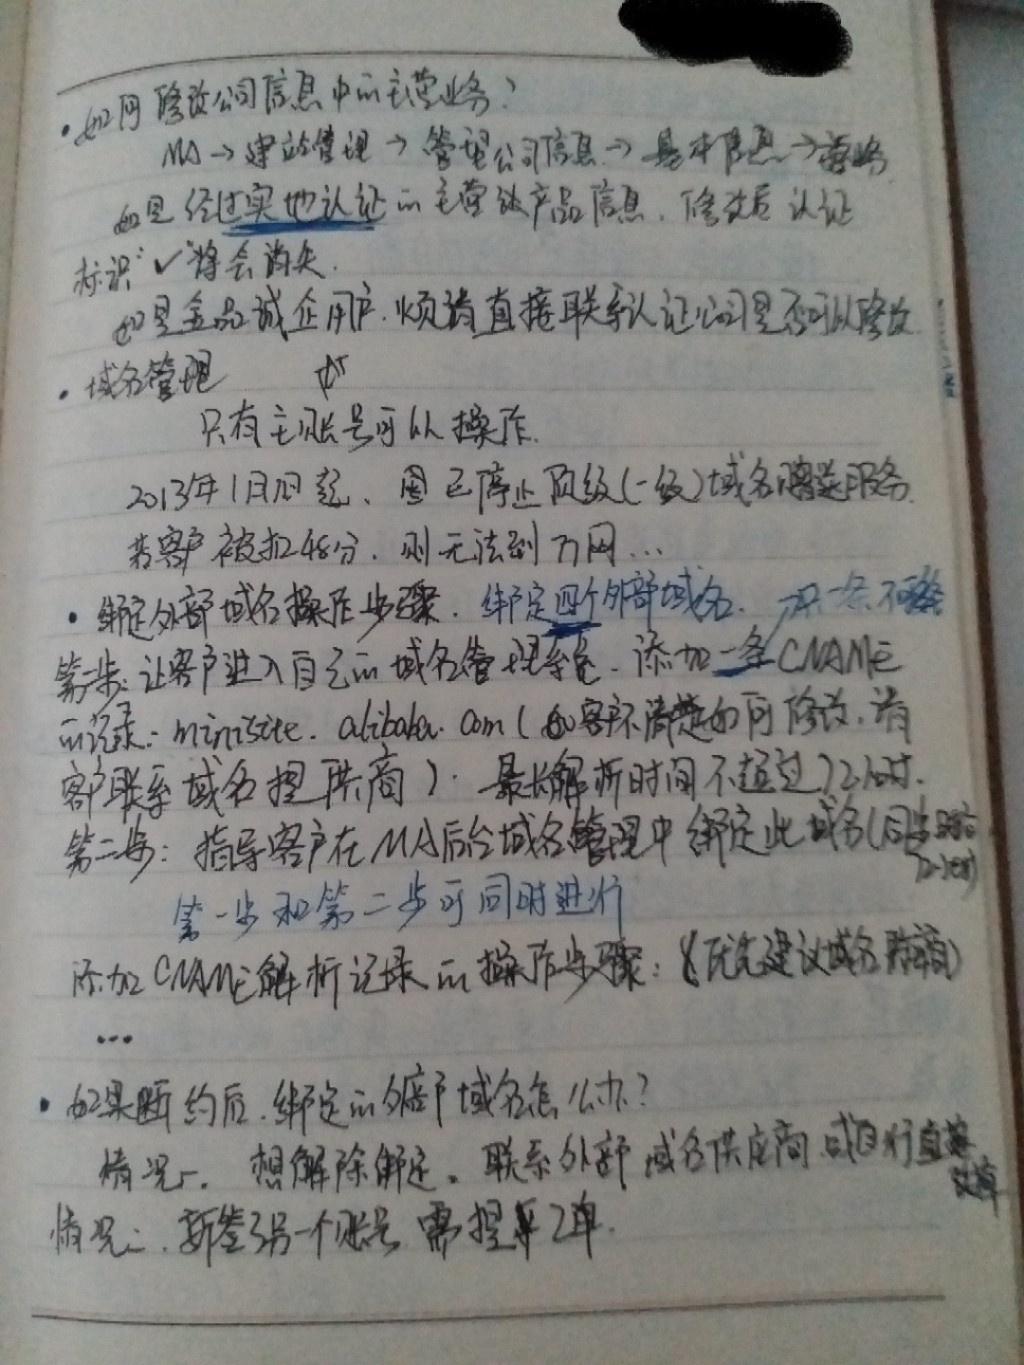 • 如何修改公司信息中的主营业务?
MA → 建站管理 → 管理公司信息 → 基本信息 →
如是经过实地认证的主营或产品信息.修改后认证
标识"✓"将会消失.
如是金品诚企用户.烦请直接联系认证公司是否可以修改
• 域名管理
只有主账号可以操作.
2013年1月1日起、已停止顶级(一级)域名赠送服务.
若客户被扣48分.则无法到万网...
• 绑定外部域名操作步骤.绑定四个外部域名.
第一步:让客户进入自己的域名管理系统.添加一条CNAME
的记录:minisite.alibaba.com(如客户不清楚如何修改.请
客户联系域名提供商).最长解析时间不超过72小时.
第二步:指导客户在MA后台域名管理中绑定此域名(同步
第一步和第二步可同时进行
添加CNAME解析记录的操作步骤:(优先建议域名
...
• 如果断约后.绑定的外部域名怎么办?
情况一.想解除绑定。联系外部域名供应商.或自行直接
情况二.新签了另一个账号.需提单.